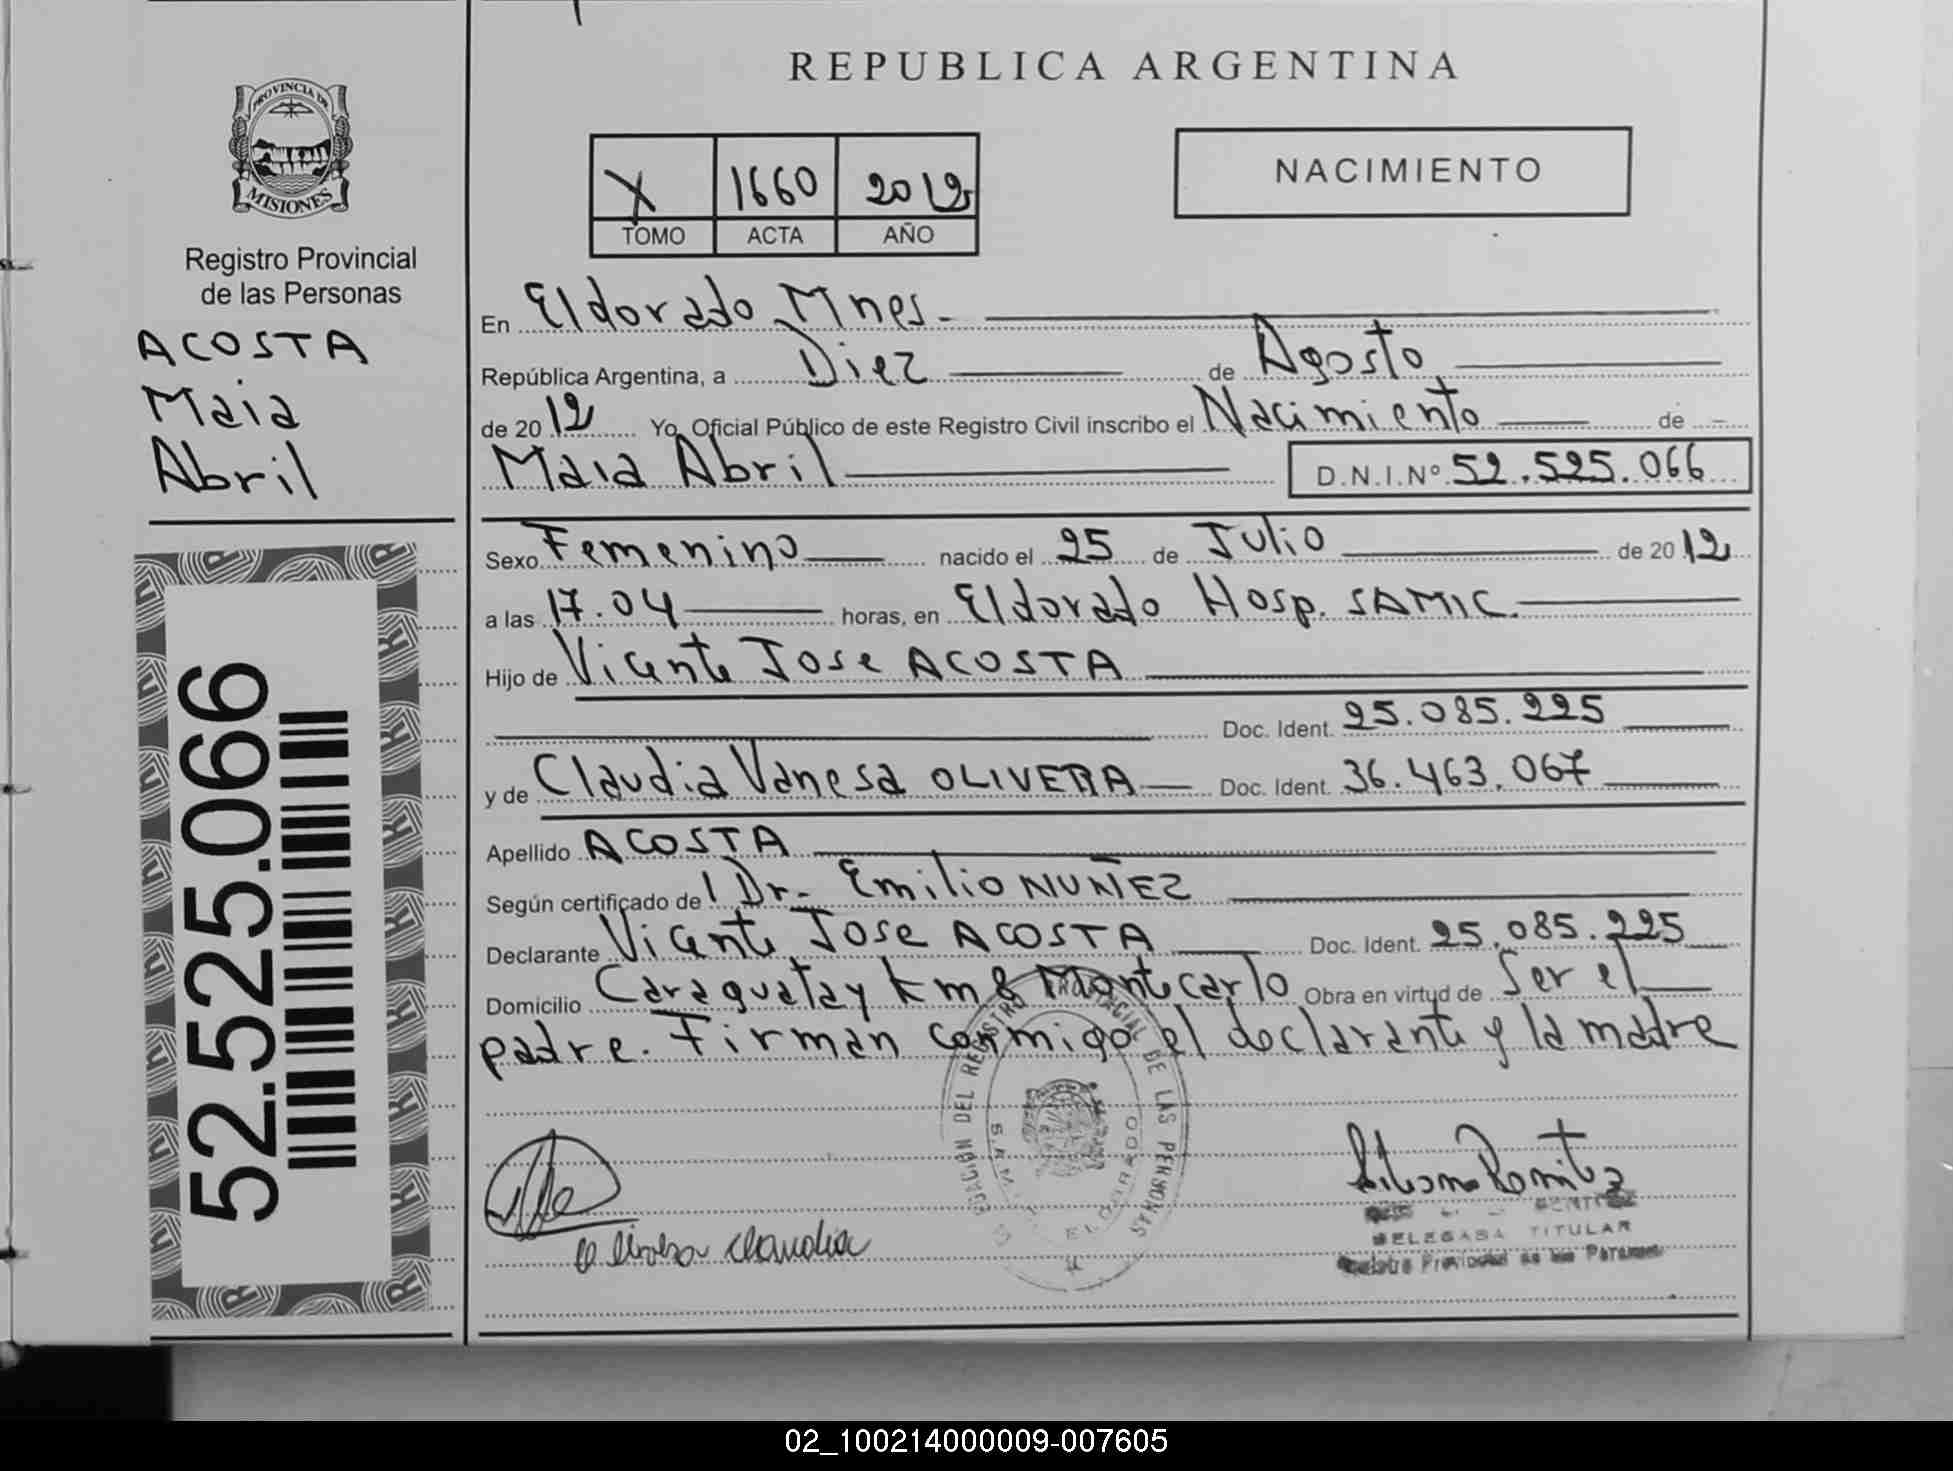 PROVINCIA DE
MISIONES
Registro Provincial
de las Personas
ACOSTA
Maia
Abril
52.525.066
REPUBLICA ARGENTINA
X 1660 2012
TOMO ACTA AÑO
NACIMIENTO
En Eldorado Mnes.
República Argentina, a Diez de Agosto
de 20 12 Yo, Oficial Público de este Registro Civil inscribo el Nacimiento de
Maia Abril D.N.I.Nº 52.525.066
Sexo Femenino nacido el 25 de Julio de 20 12
a las 17.04 horas, en Eldorado Hosp. SAMIC.
Hijo de Vicente Jose ACOSTA
Doc. Ident. 25.085.225
y de Claudia Vanesa OLIVERA Doc. Ident. 36.463.067
Apellido ACOSTA
Según certificado de l Dr. Emilio NUÑEZ
Declarante Vicente Jose ACOSTA Doc. Ident. 25.085.225
Domicilio Caraguatay Km 8 Montecarlo Obra en virtud de Ser el
padre. Firman conmigo el declarante y la madre
DEL REGISTRO PROVINCIAL DE LAS PERSONAS
ELDORADO
claudia
DELEGADA TITULAR
Registro Provincial de las Personas
02_100214000009-007605